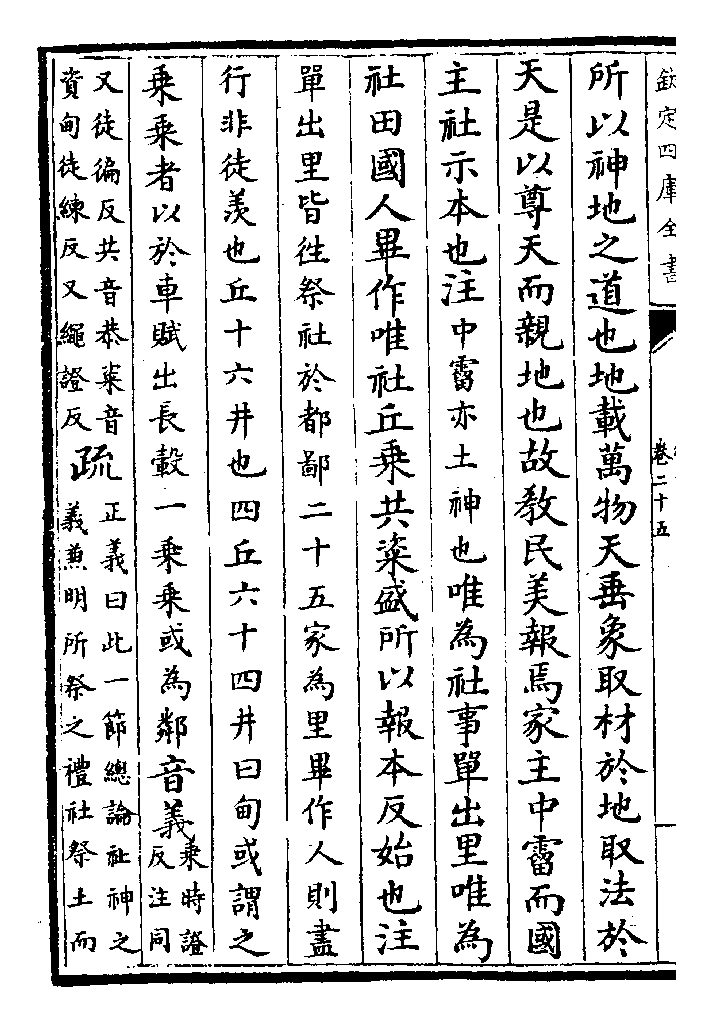 欽定四庫全書
卷二十五
所以神地之道也地載萬物天垂象取材於地取法於
天是以尊天而親地也故教民美報焉家主中霤而國
主社示本也注中霤亦土神也唯為社事單出里唯為
社田國人畢作唯社丘乘共粢盛所以報本反始也注
單出里皆往祭社於都鄙二十五家為里畢作人則盡
行非徒羨也丘十六井也四丘六十四井曰甸或謂之
乘乘者以於車賦出長轂一乘乘或為鄰音義乘時證
反注同
又徒徧反共音恭粢音
資甸徒練反又繩證反疏正義曰此一節總論社神之
義兼明所祭之禮社祭土而